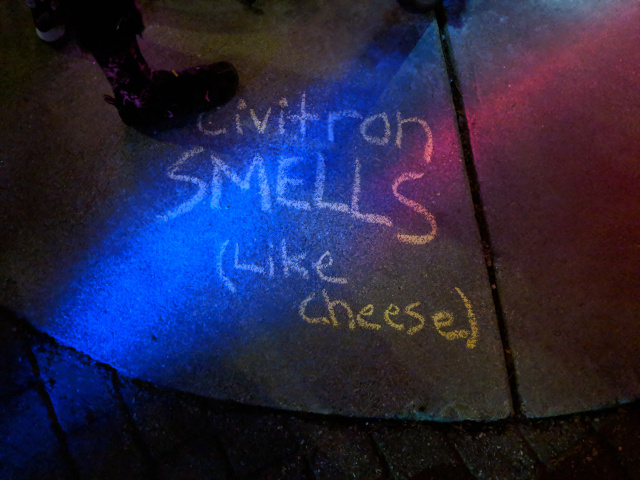 civitron
SMELLS
(Like
cheese)